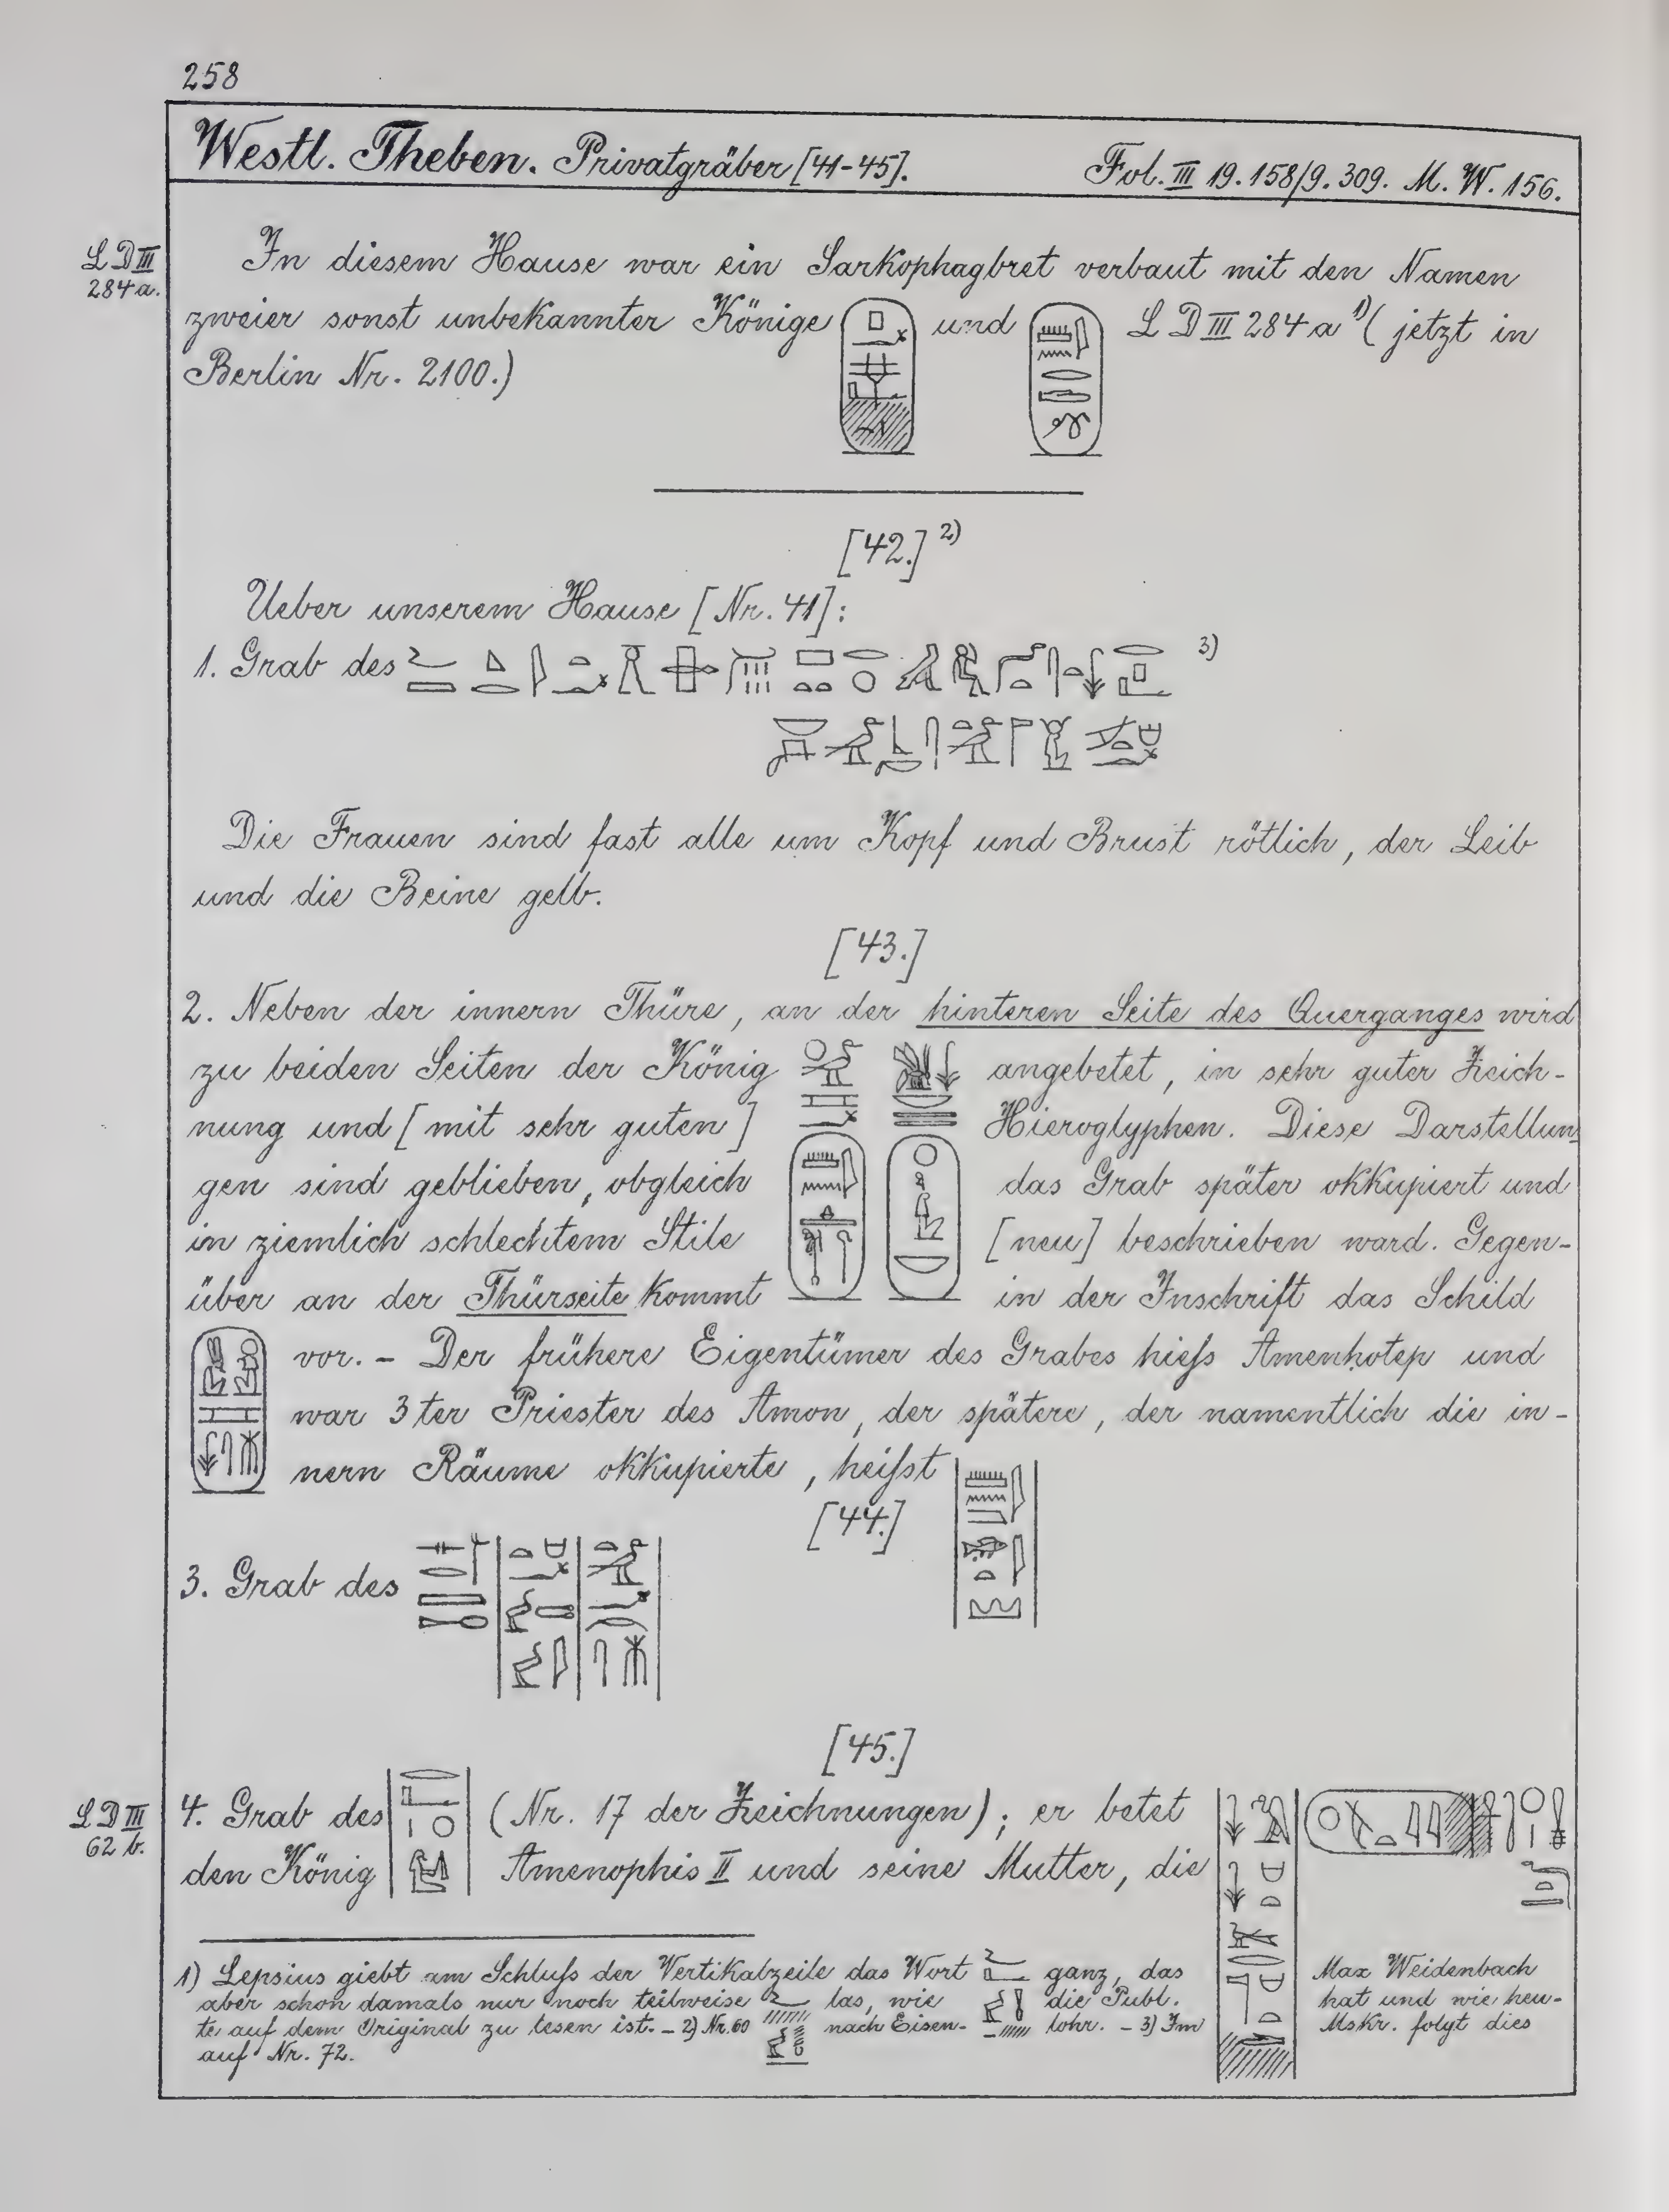 258
Westl. Theben. Privatgräber [41-45]. Fol. III 19. 158/9. 309. M. W. 156.
L D III
284 a.
In diesem Hause war ein Sarkophagbret verbaut mit den Namen
zweier sonst unbekannter Könige und L D III 284 a 1) ( jetzt in
Berlin Nr. 2100.)
[42.] 2)
Ueber unserem Hause [Nr. 41]:
1. Grab des 3)
Die Frauen sind fast alle um Kopf und Brust rötlich, der Leib
und die Beine gelb.
[43.]
2. Neben der innern Thüre, an der hinteren Seite des Querganges wird
zu beiden Seiten der König angebetet, in sehr guter Zeich-
nung und [mit sehr guten] Hieroglyphen. Diese Darstellun
gen sind geblieben, obgleich das Grab später okkupiert und
in ziemlich schlechtem Stile [neu] beschrieben ward. Gegen-
über an der Thürseite kommt in der Inschrift das Schild
vor. - Der frühere Eigentümer des Grabes hiefs Amenhotep und
war 3 ter Priester des Amon, der spätere, der namentlich die in-
nern Räume okkupierte, heifst
[44.]
3. Grab des
[45.]
L D III
62 b.
4. Grab des (Nr. 17 der Zeichnungen); er betet
den König Amenophis II und seine Mutter, die
1) Lepsius giebt am Schlufs der Vertikalzeile das Wort ganz, das Max Weidenbach
aber schon damals nur noch teilweise las, wie die Publ. hat und wie heu-
te auf dem Original zu lesen ist. - 2) Nr. 60 nach Eisen- lohr. - 3) Im Mskr. folgt dies
auf Nr. 72.